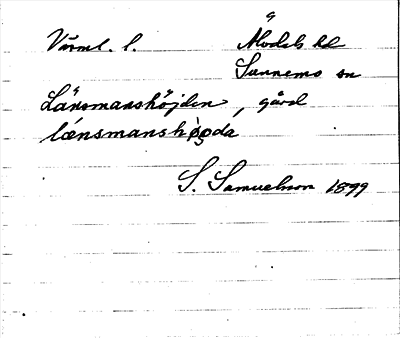 Värml. l. Älvdals hd
Sunnemo sn
Länsmanshöjden, gård
lænsmanshø̀gda
S. Samuelsson 1899